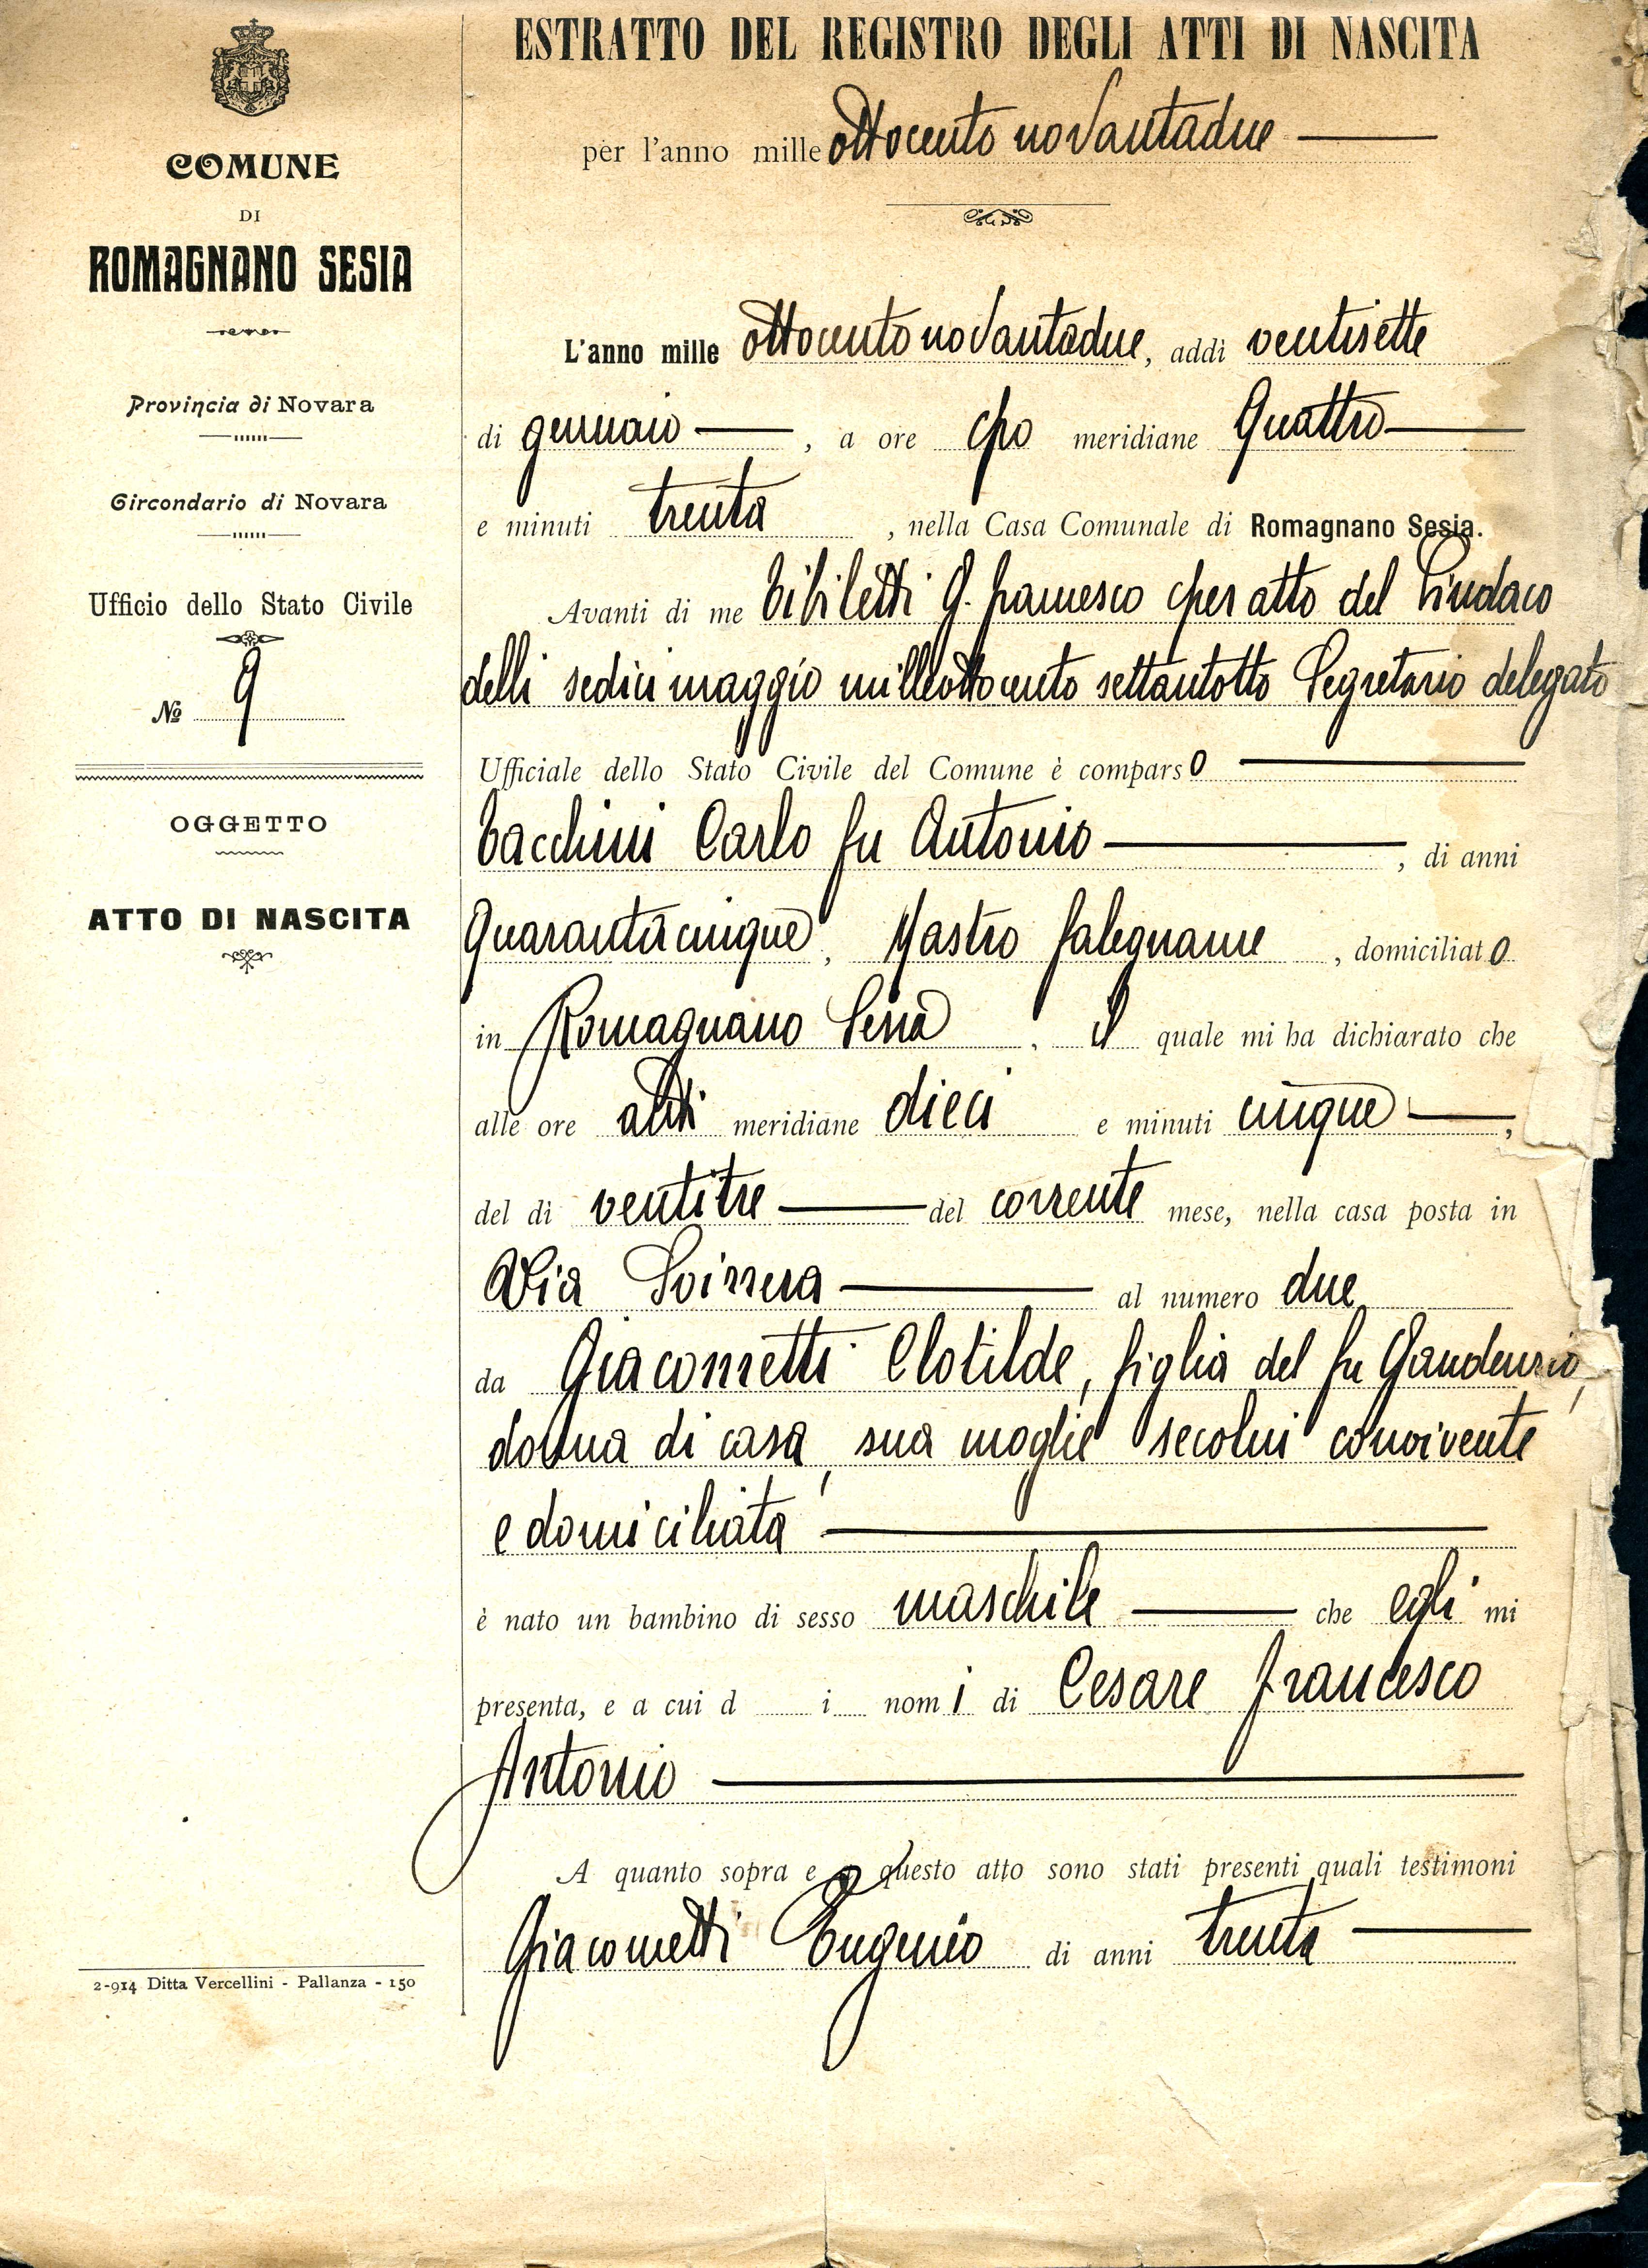 COMUNE
DI
ROMAGNANO SESIA
Provincia di Novara
Circondario di Novara
Ufficio dello Stato Civile
№ 9
OGGETTO
ATTO DI NASCITA
2-914 Ditta Vercellini - Pallanza - 150
ESTRATTO DEL REGISTRO DEGLI ATTI DI NASCITA
per l'anno mille ottocento novantadue
L'anno mille ottocento novantadue, addì ventisette
di gennaio, a ore meridiane Quattro
e minuti trenta, nella Casa Comunale di Romagnano Sesia.
Avanti di me G. Francesco per atto del Sindaco
delli sedici maggio milleottocento settantotto Segretario delegato
Ufficiale dello Stato Civile del Comune è comparso
Tacchini Carlo fu Antonio, di anni
Quarantacinque, Mastro falegname, domiciliato
in Romagnano Sesia. Il quale mi ha dichiarato che
alle ore anti meridiane dieci e minuti cinque,
del dì ventitre del corrente mese, nella casa posta in
Via al numero due
da Giacometti Clotilde, figlia del fu Gaudenzio,
donna di casa, sua moglie secolui convivente
e domiciliata
è nato un bambino di sesso maschile che egli mi
presenta, e a cui d i nomi di Cesare Francesco
Antonio
A quanto sopra e a questo atto sono stati presenti quali testimoni
Giacometti Eugenio di anni trenta